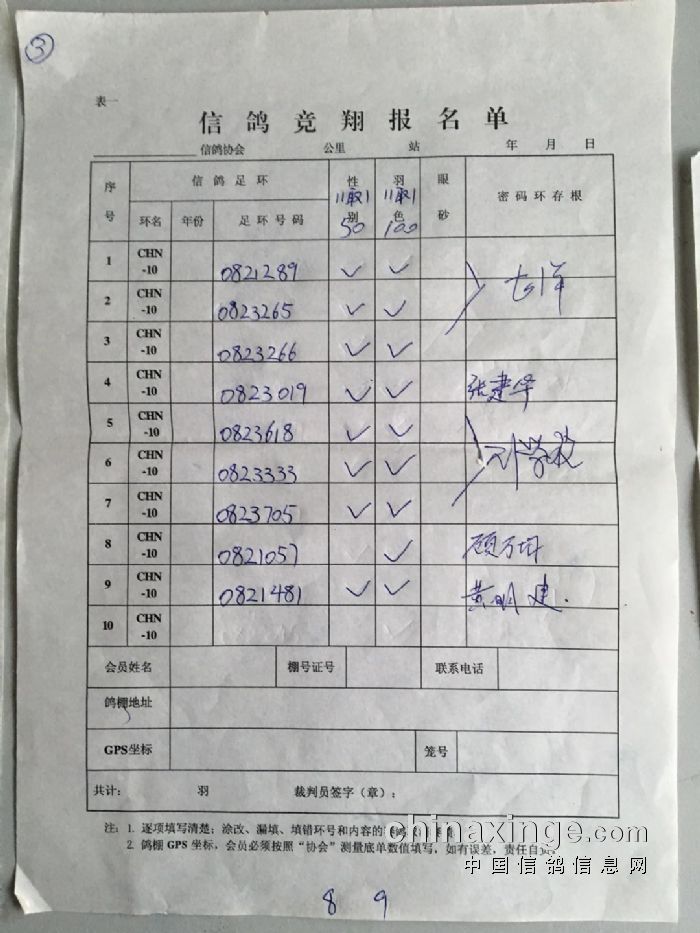 ③
表一
信鸽竞翔报名单
信鸽协会 公里 站 年 月 日
序号 信鸽足环 性别 羽色 眼砂 密码环存根
11取1 11取1
50 100
环名 年份 足环号码
1 CHN-10 0821289 ✓ ✓
2 CHN-10 0823265 ✓ ✓
3 CHN-10 0823266 ✓ ✓
4 CHN-10 0823019 ✓ ✓ 张建华
5 CHN-10 0823618 ✓ ✓
6 CHN-10 0823333 ✓ ✓
7 CHN-10 0823705 ✓ ✓
8 CHN-10 0821057 ✓
9 CHN-10 0821481 ✓ ✓ 黄明建.
10 CHN-10
会员姓名 棚号证号 联系电话
鸽棚地址
GPS坐标 笼号
共计: 羽 裁判员签字(章):
注: 1. 逐项填写清楚; 涂改、漏填、填错环号和内容的
2. 鸽棚 GPS 坐标, 会员必须按照“协会”测量底单数值填写, 如有误差, 责任自
chinaxinge.com
中国信鸽信息网
8 9